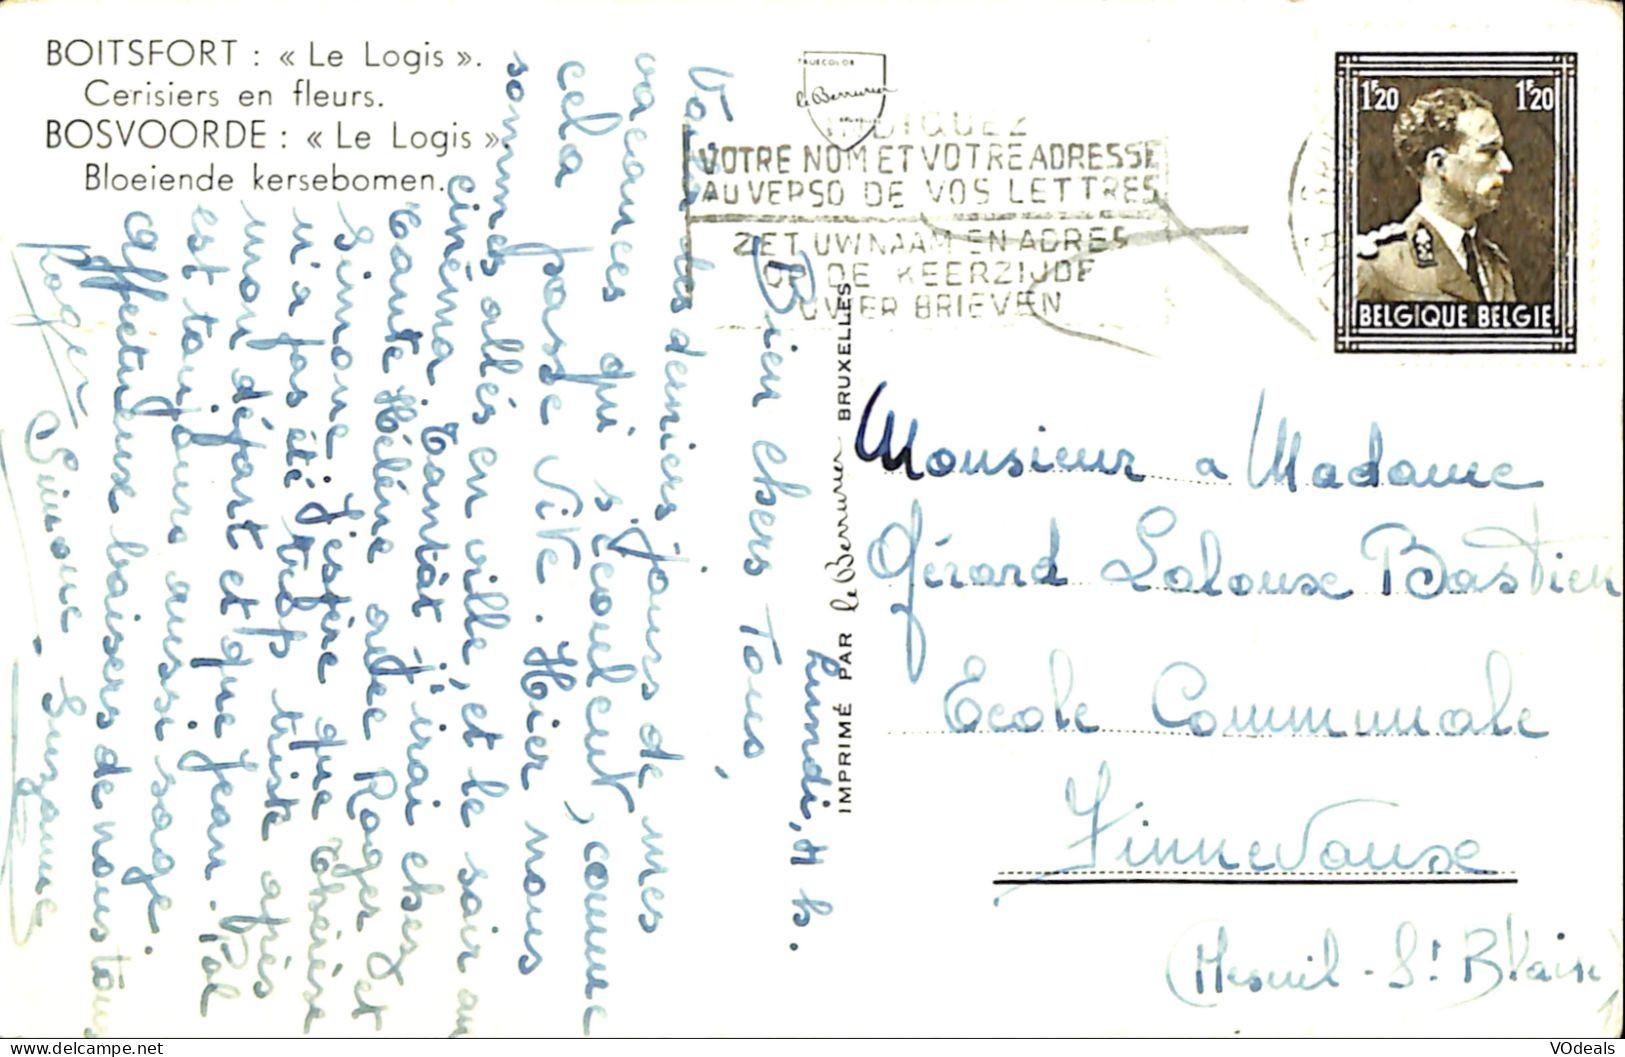 BOITSFORT : « Le Logis ».
Cerisiers en fleurs.
BOSVOORDE : « Le Logis ».
Bloeiende kersebomen.
TRUECOLOR
le Berrurier
BRUXELLES
INDIQUEZ
VOTRE NOM ET VOTRE ADRESSE
AU VERSO DE VOS LETTRES
ZET UW NAAM EN ADRES
OP DE KEERZIJDE
UWER BRIEVEN
1F20 1F20
BELGIQUE BELGIE
IMPRIMÉ PAR le Berrurier BRUXELLES
Lundi, 4 h.
Bien chers Tous,
Voici les derniers jours de mes
vacances qui s'écoulent, comme
cela passe vite. Hier nous
sommes allés en ville, et le soir au
cinéma. Tantôt j'irai chez
tante Hélène avec Roger et
Simone. J'espère que chérése
n'a pas été trop triste après
mon départ et que Jean-Pol
est toujours aussi sage.
Affectueux baisers de nous tous
Roger Simone Suzanne
Monsieur a Madame
Gérard Laloux Bastien
Ecole Communale
Finnevaux
(Mesnil-St Blaise)
VOdeals